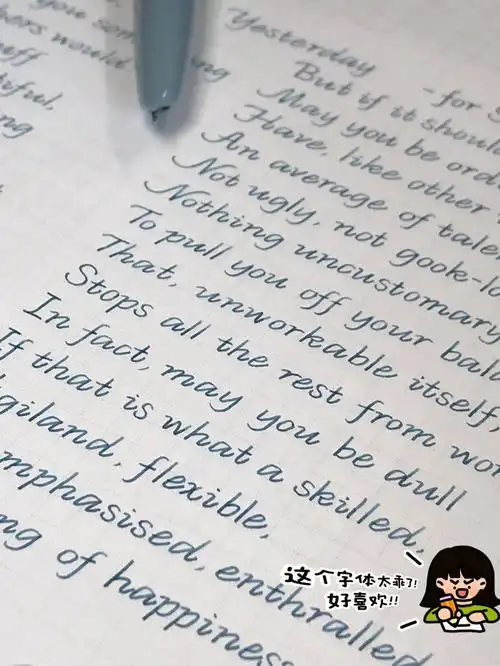 you som
hers would
uff
tiful,
ng
ing
Yesterday
- for S
But if it should
May you be ord
Have, like other
An average of talen
Not ugly, not gook-lo
Nothing uncustomary
To pull you off your bala
That, unworkable itself,
Stops all the rest from wo
In fact, may you be dull
If that is what a skilled,
igiland, flexible,
mphasised, enthralled
ng of happiness
这个字体太乖了!
好喜欢!!